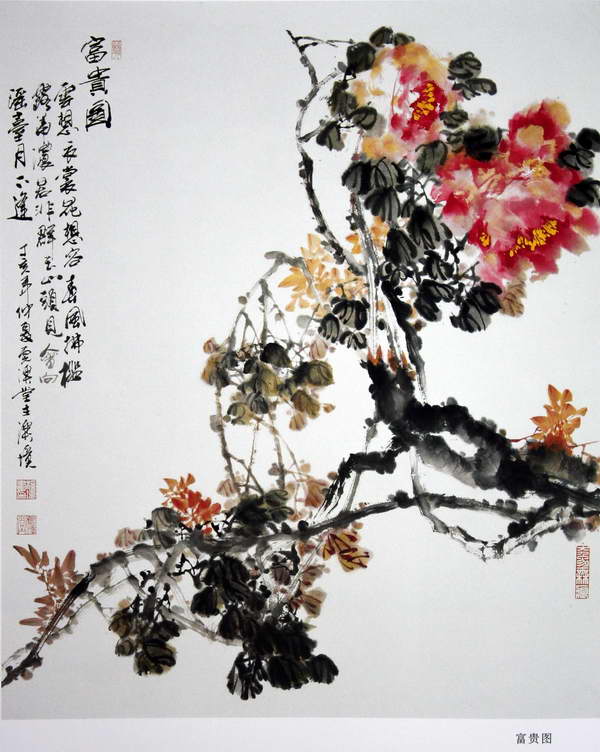 富貴圖
雲想衣裳花想容春風拂檻
露華濃若非群玉山頭見會向
瑤臺月下逢
丁亥年仲夏
富贵图